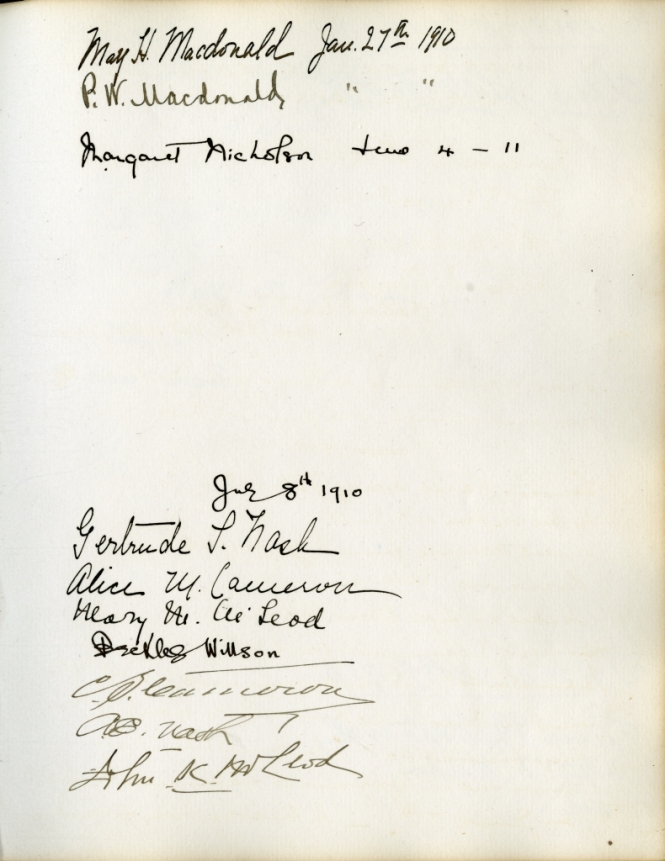 May H. Macdonald Jan. 27th 1910
P. W. Macdonald " "
Margaret Nicholson 4 - 11
July 8th 1910
Gertrude S. Nash
Alice M. Cameron
Mary M. McLeod
Beckles Willson
Cameron
Nash
John K. McLeod